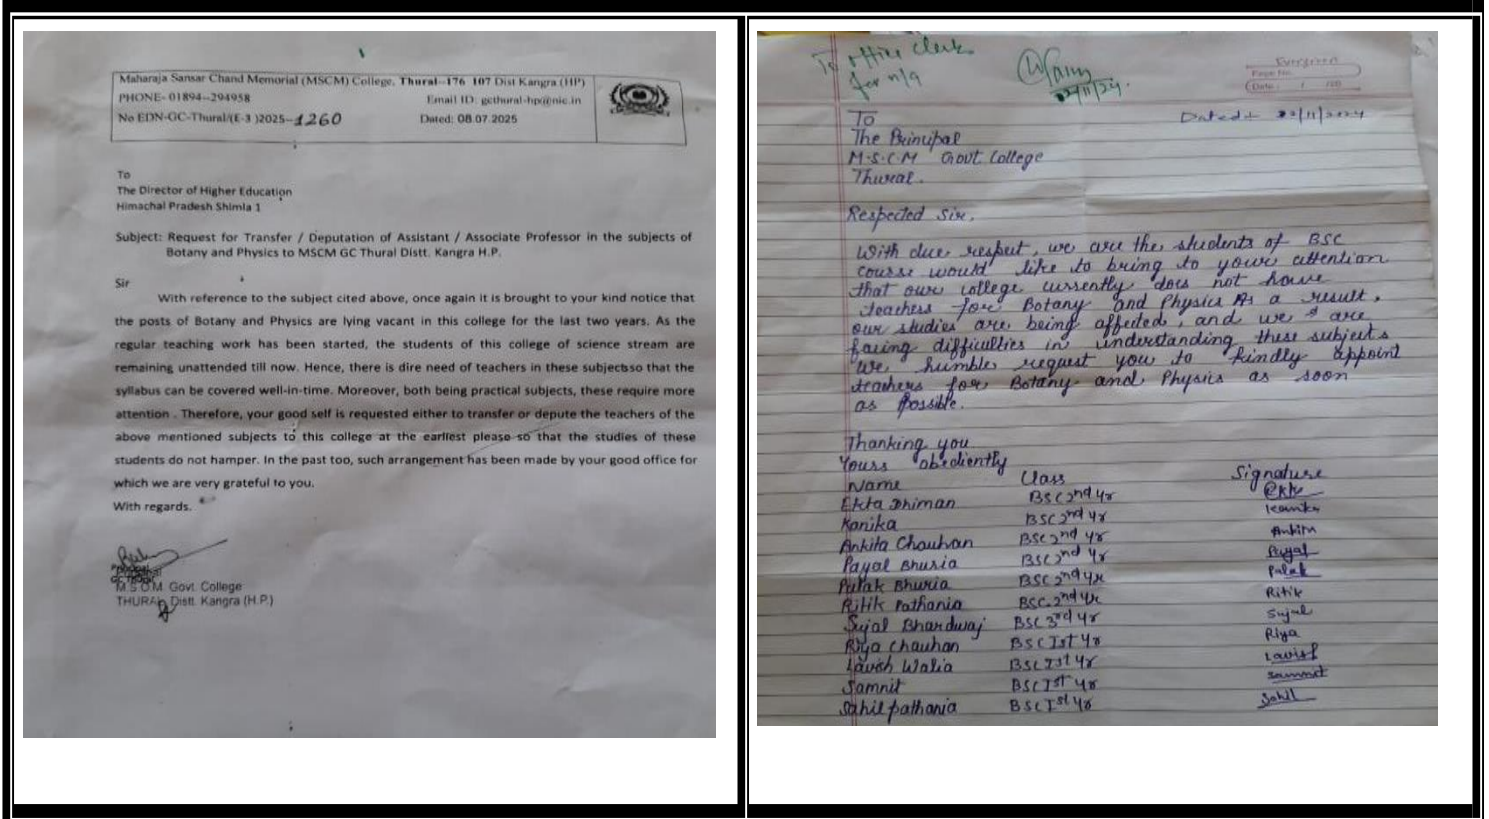 Maharaja Sansar Chand Memorial (MSCM) College, Thural-176 107 Dist Kangra (HP)
PHONE- 01894-294958 Email ID: gcthural-hp@nic.in
No EDN-GC-Thural/(E-3 )2025-1260 Dated: 08.07.2025
To
The Director of Higher Education
Himachal Pradesh Shimla 1
Subject: Request for Transfer / Deputation of Assistant / Associate Professor in the subjects of
Botany and Physics to MSCM GC Thural Distt. Kangra H.P.
Sir
With reference to the subject cited above, once again it is brought to your kind notice that
the posts of Botany and Physics are lying vacant in this college for the last two years. As the
regular teaching work has been started, the students of this college of science stream are
remaining unattended till now. Hence, there is dire need of teachers in these subjectsso that the
syllabus can be covered well-in-time. Moreover, both being practical subjects, these require more
attention . Therefore, your good self is requested either to transfer or depute the teachers of the
above mentioned subjects to this college at the earliest please so that the studies of these
students do not hamper. In the past too, such arrangement has been made by your good office for
which we are very grateful to you.
With regards.
M.S.C.M. Govt. College
THURAL Distt. Kangra (H.P.)
To office clerk
for n/a
Evergreen
Page No.
Date: / /20
To Dated:- 22/11/2024
The Principal
M.S.C.M Govt College
Thural.
Respected Sir,
With due respect, we are the students of BSC
course would like to bring to your attention
that our college currently does not have
teachers for Botany and Physics As a result,
our studies are being affected, and we are
facing difficulties in understanding these subjects
We humble request you to kindly appoint
teachers for Botany and Physics as soon
as possible.
Thanking you
Yours obediently
Name Class Signature
Ekta Dhiman BSC 2nd yr Ekta
Kanika BSC 2nd yr Kanika
Ankita Chauhan BSC 2nd yr Ankita
Payal Bhuria BSC 2nd yr Payal
Palak Bhuria BSC 2nd yr Palak
Ritik Pathania BSC 2nd yr Ritik
Sujal Bhardwaj BSC 3rd yr Sujal
Riya Chauhan BSC Ist yr Riya
Lavish Walia BSC Ist yr Lavish
Samnit BSC Ist yr Samnit
Sahil pathania BSC Ist yr Sahil